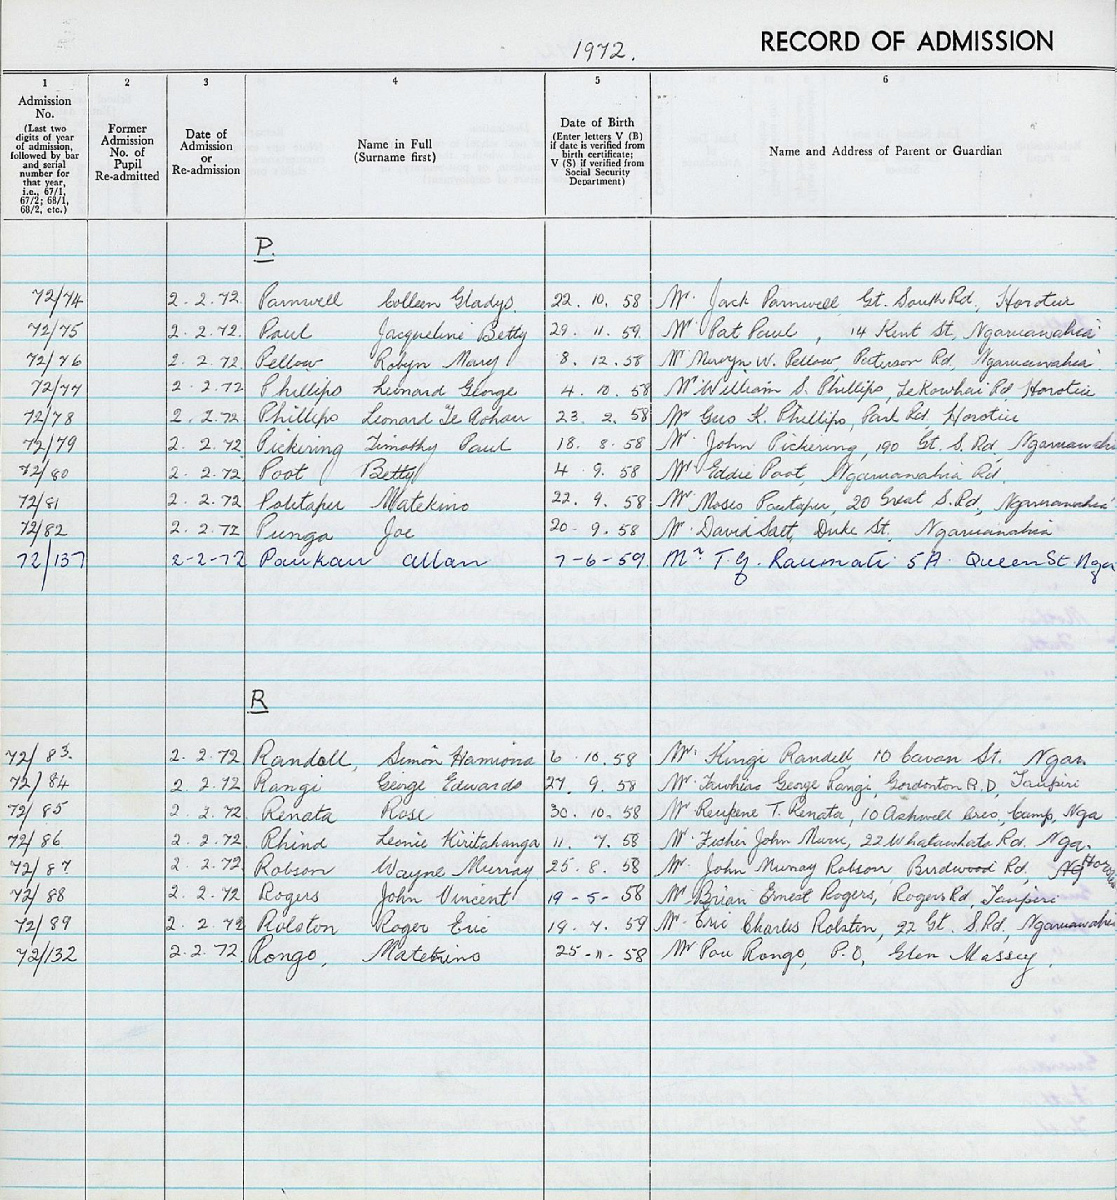 1972.
RECORD OF ADMISSION
1 2 3 4 5 6
Admission No. (Last two digits of year of admission, followed by bar and serial number for that year, i.e., 67/1, 67/2; 68/1, 68/2, etc.)
Former Admission No. of Pupil Re-admitted
Date of Admission or Re-admission
Name in Full (Surname first)
Date of Birth (Enter letters V (B) if date is verified from birth certificate; V (S) if verified from Social Security Department)
Name and Address of Parent or Guardian
P.
72/74 2.2.72 Parnwell Colleen Gladys 22.10.58 Mr. Jack Parnwell Gt. South Rd, Horotiu
72/75 2.2.72. Paul Jacqueline Betty 29.11.59 Mr Pat Paul, 14 Kent St, Ngaruawahia
72/76 2.2.72 Pellow Robyn Mary 8.12.58 Mr Mervyn W. Pellow, Peterson Rd, Ngaruawahia
72/77 2.2.72 Phillips Leonard George 4.10.58 Mr William S. Phillips, TeKowhai Rd Horotiu
72/78 2.2.72 Phillips Leonard Te 23.2.58 Mr Gus K. Phillips, Park Rd Horotiu
72/79 2.2.72 Pickering Timothy Paul 18.8.58 Mr. John Pickering, 190 Gt. S. Rd, Ngaruawahia
72/80 2.2.72. Poot Betty 4.9.58 Mr Eddie Poot, Ngaruawahia Rd.
72/81 2.2.72 Potetapu Matekino 22.9.58 Mr. Moses 20 Great S. Rd, Ngaruawahia
72/82 2.2.72 Punga Joe 20-9.58 Mr. David Duke St. Ngaruawahia
72/137 2-2-72 Paukau Allan 7-6-59 Mr T.G. Raumati 5A. Queen St. Nga
R
72/83. 2.2.72 Randall, Simon Hamiona 6.10.58 Mr. Kingi Randell, 10 Cavan St. Ngar.
72/84 2.2.72 Rangi George Edwards 27.9.58 Mr. Tawhiao George Rangi, Gordonton R.D, Taupiri
72/85 2.2.72 Renata Rose 30.10.58 Mr Reupene T. Renata, 10 Ashwell Cres, Camp, Nga
72/86 2.2.72 Rhind Leonie Kiritahanga 11.7.58 Mr. John 22 Whatawhata Rd. Nga.
72/87 2.2.72. Robson Wayne Murray 25.8.58 Mr. John Murray Robson, Birdwood Rd,
72/88 2.2.72 Rogers John Vincent 19-5-58 Mr Brian Ernest Rogers, Rogers Rd, Taupiri
72/89 2.2.72 Rolston Roger Eric 19.7.59 Mr. Eric Charles Rolston, 22 Gt. S.Rd, Ngaruawahia
72/132 2.2.72 Rongo, Matekino 25-11-58 Mr Pou Rongo, P.O, Glen Massey.